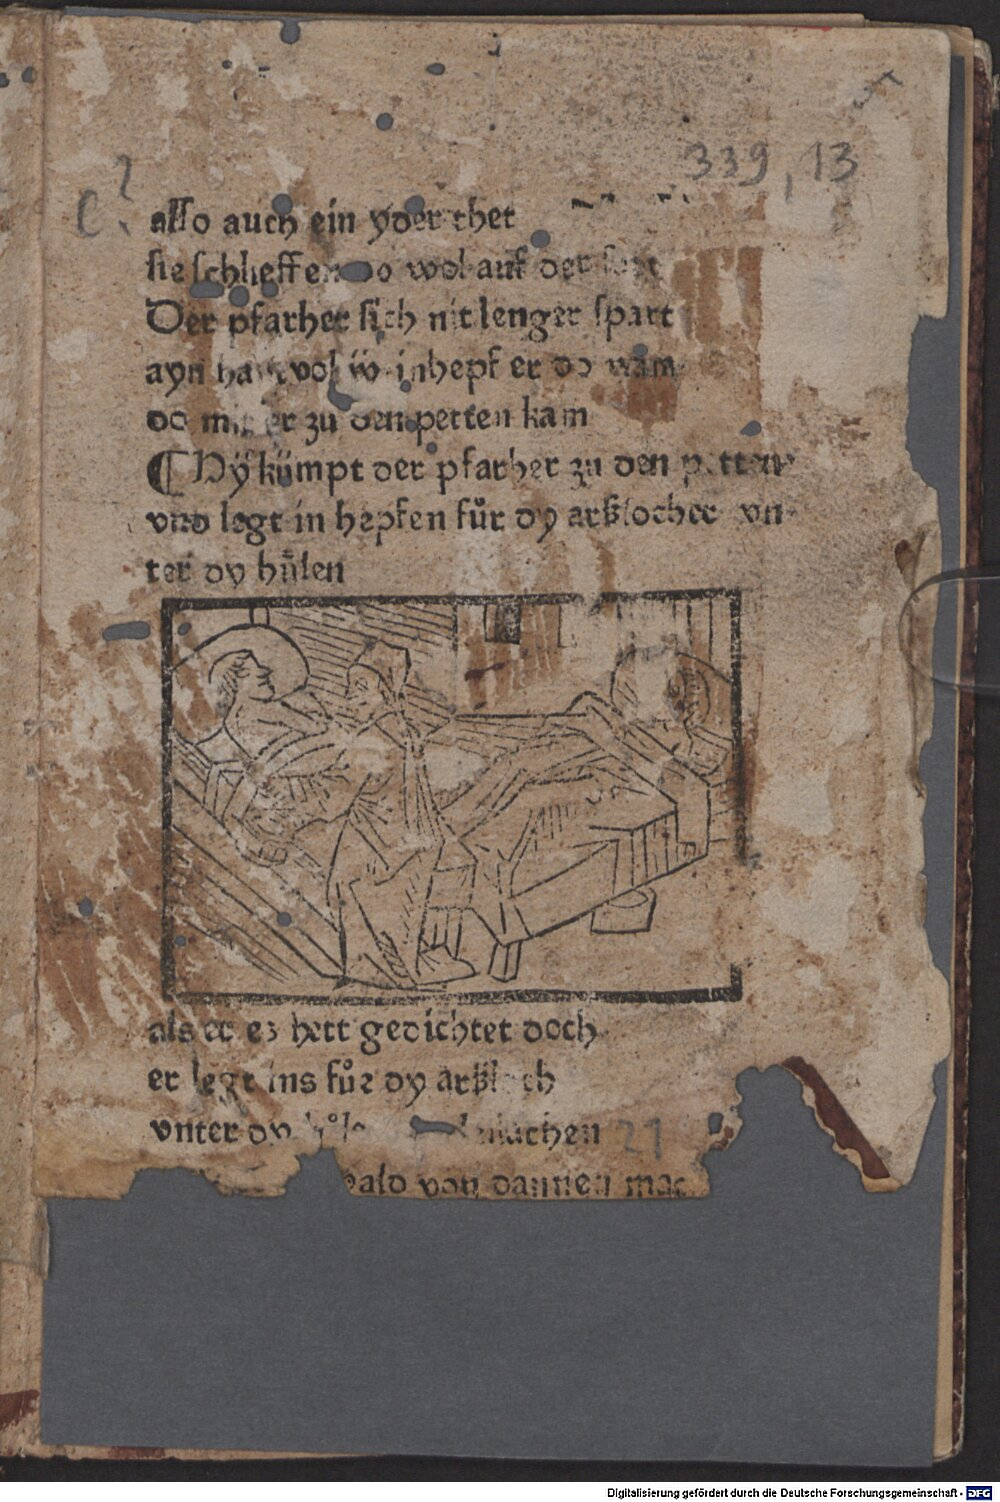 339, 13
C?
also auch ein yder thet
sie schlieffen do wol auf der
Der pfarher sich nit lenger spart
ayn hepf er do nam
do mit er zu den petten kam
¶ Hÿ kümpt der pfarher zu den petten
vnd legt in hepfen fůr dy arßlocher vn-
ter dy hůlen
als er es hett gedichtet doch
er legt ins fůr dy arßloch
vnter dy machen 21
bald von dannen
Digitalisierung gefördert durch die Deutsche Forschungsgemeinschaft - DFG